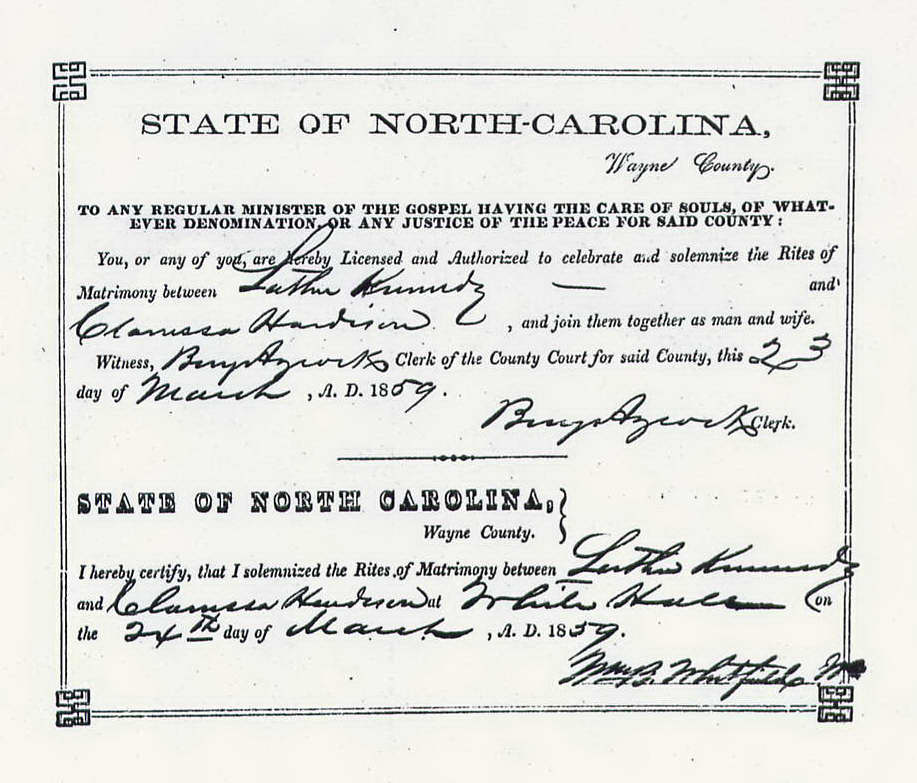 STATE OF NORTH-CAROLINA,
Wayne County.
TO ANY REGULAR MINISTER OF THE GOSPEL HAVING THE CARE OF SOULS, OF WHAT-
EVER DENOMINATION, OR ANY JUSTICE OF THE PEACE FOR SAID COUNTY:
You, or any of you, are hereby Licensed and Authorized to celebrate and solemnize the Rites of
Matrimony between Luther Kennedy — and
Clarissa Hardison , and join them together as man and wife.
Witness, Benj Aycock Clerk of the County Court for said County, this 23
day of March , A. D. 1859.
Benj Aycock Clerk.
STATE OF NORTH CAROLINA,
Wayne County.
I hereby certify, that I solemnized the Rites of Matrimony between Luther Kennedy
and Clarissa Hardison at White Hall on
the 24th day of March , A. D. 1859.
Wm B. Whitfield